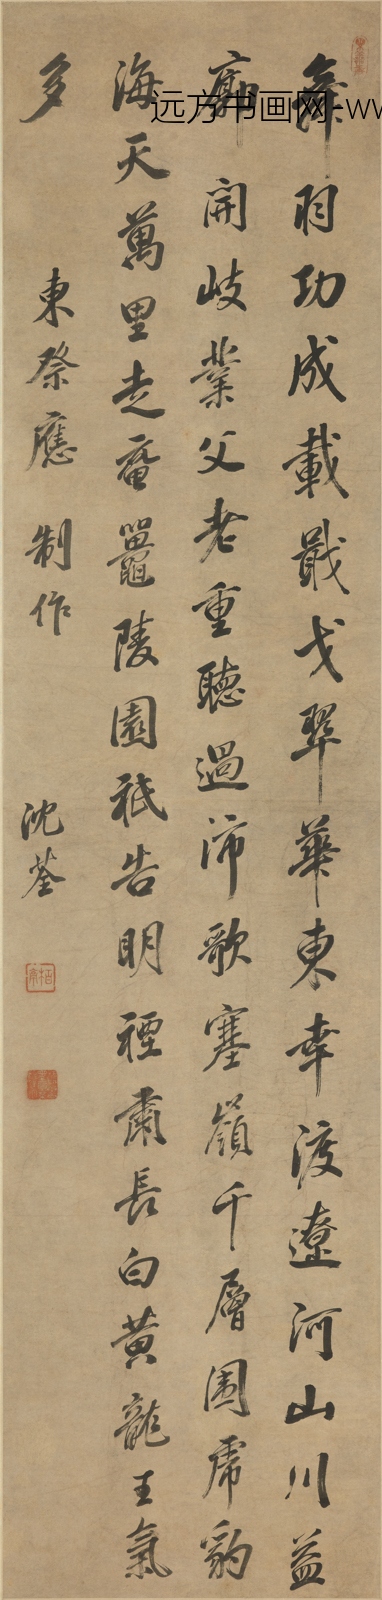 舞羽功成載戢戈翠華東幸渡遼河山川益
廓開岐業父老重聽過沛歌塞嶺千層圍虎豹
海天萬里走黿鼉陵園祇告明禋肅長白黃龍王氣
多
東祭應制作
沈荃
远方书画网-ww